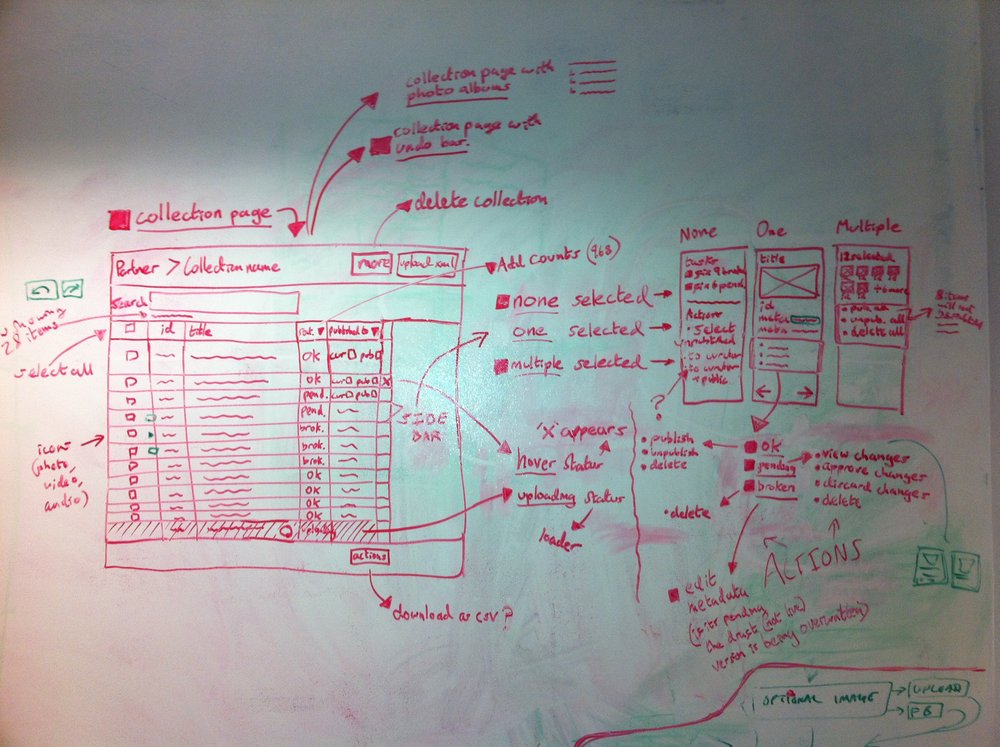 collection page with
photo albums
collection page with
undo bar.
collection page
delete collection
Partner > Collection name
more
upload xml
Add counts (968)
Search
showing
28 items
select all
id
title
stat. ▼
published to ▼
OK
cur pub
OK
cur pub
x
pend.
cur pub
pend.
brok.
brok.
brok.
OK
OK
OK
OK
SIDE
BAR
icons
(photo,
video,
audio)
actions
download as csv?
none selected
one selected
multiple selected
'x' appears
hover status
uploading status
loader
None
One
Multiple
Actions
• select
• to curator
• public
title
id
meta
meta
12 selected
+6 more
• pub. all
• unpub. all
• delete all
8 items
will not
be
?
• publish
• unpublish
• delete
OK
pending
broken
• view changes
• approve changes
• discard changes
• delete
• delete
ACTIONS
edit
metadata
(if its pending
the draft (not live)
version is being overwritten)
OPTIONAL IMAGE
UPLOAD